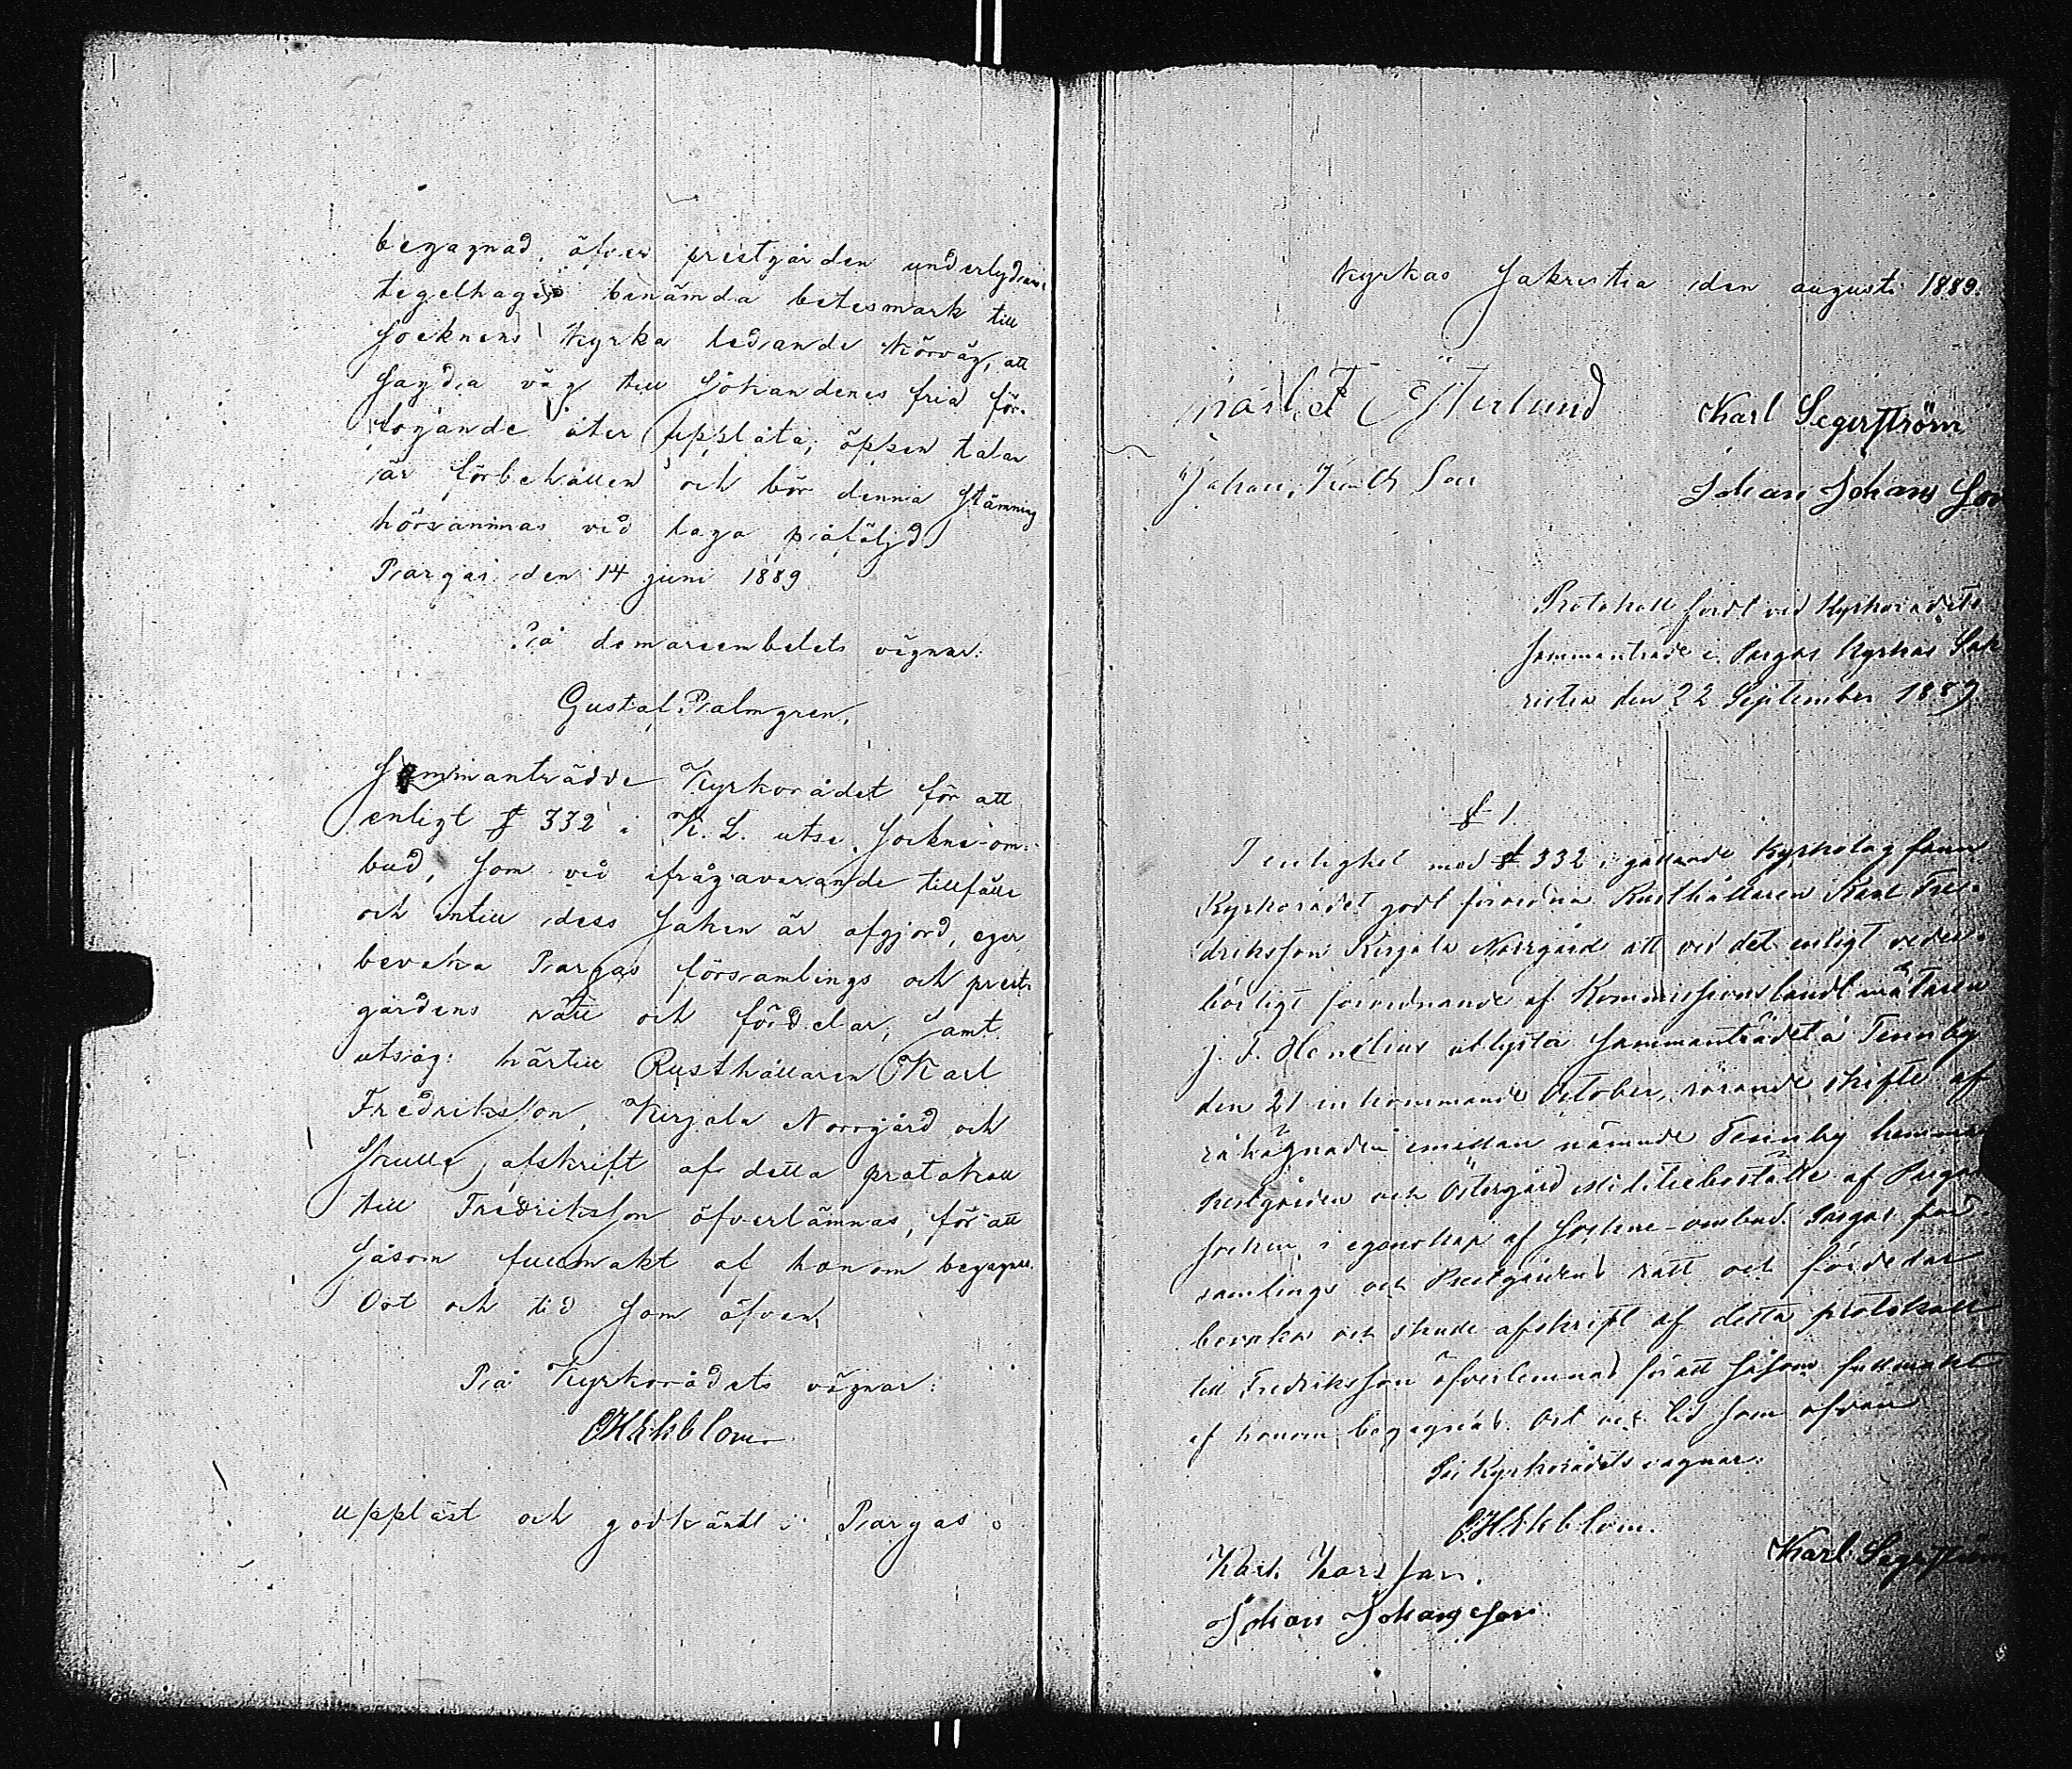 begagnad, öfver prestgården underlydande
tegelhagen benämda betesmark till
Socknens Kyrka ledande Körväg, att
Sagda väg till Sökandenes fria för-
fogande åter upplåta; öppen talan
är förbehållen och bör denna Stämning
hörsammas vid laga påföljd.
Pargas den 14 juni 1889.
På domareembetets vägnar:
Gustaf Palmgren.
Sammanträdde Kyrkorådet för att
enligt § 332 i K. L. utse Sockne-om-
bud, Som vid ifrågavarande tillfälle
och intill dess Saken är afgjord, eger
bevaka Pargas församlings och prest-
gårdens rätt och fördelar, Samt
utsåg härtill Rusthållaren Karl
Fredriksson, Kirjala Norrgård och
Skulle afskrift af detta protokoll
till Fredriksson öfverlämnas, för att
Såsom fullmakt af honom begagnas.
Ort och tid Som öfvan,
På Kyrkorådets vägnar:
Ekblom
Uppläst och godkändt i Pargas
Kyrkas Sakristia den augusti 1889.
Karl F Österlund
Karl Segerström
Johan Son
Johan Johans Son
Protokoll fördt vid Kyrkorådets
Sammanträde i Pargas Kyrkas Sak
ristia den 22 September 1889.
§ 1
I enlighet med § 332 i gällande Kyrkolag fann
Kyrkorådet godt förordna Rusthållaren Karl Fre-
driksson Kirjala Norrgård att vid det enligt veder-
börligt förordnande af Kommissionslandtmätaren
J. F. Helenius utlysta Sammanträdet å Tennby
den 21 inkommande October, rörande skifte af
råhägnaden emellan nämnde Tennby hemman
Prestgården och Östergård Militieboställe af Pargas
Socken, i egenskap af Sockne-ombud Pargas för-
samlings och Prestgårdens rätt och fördelar
bevaka och skulle afskrift af detta protokoll
till Fredriksson öfverlemnas för att Såsom fullmakt
af honom begagnas. Ort och tid Som ofvan
På Kyrkorådets vägnar:
Ekblom.
Karl Karlsson.
Karl Segerström
Johan Johansson